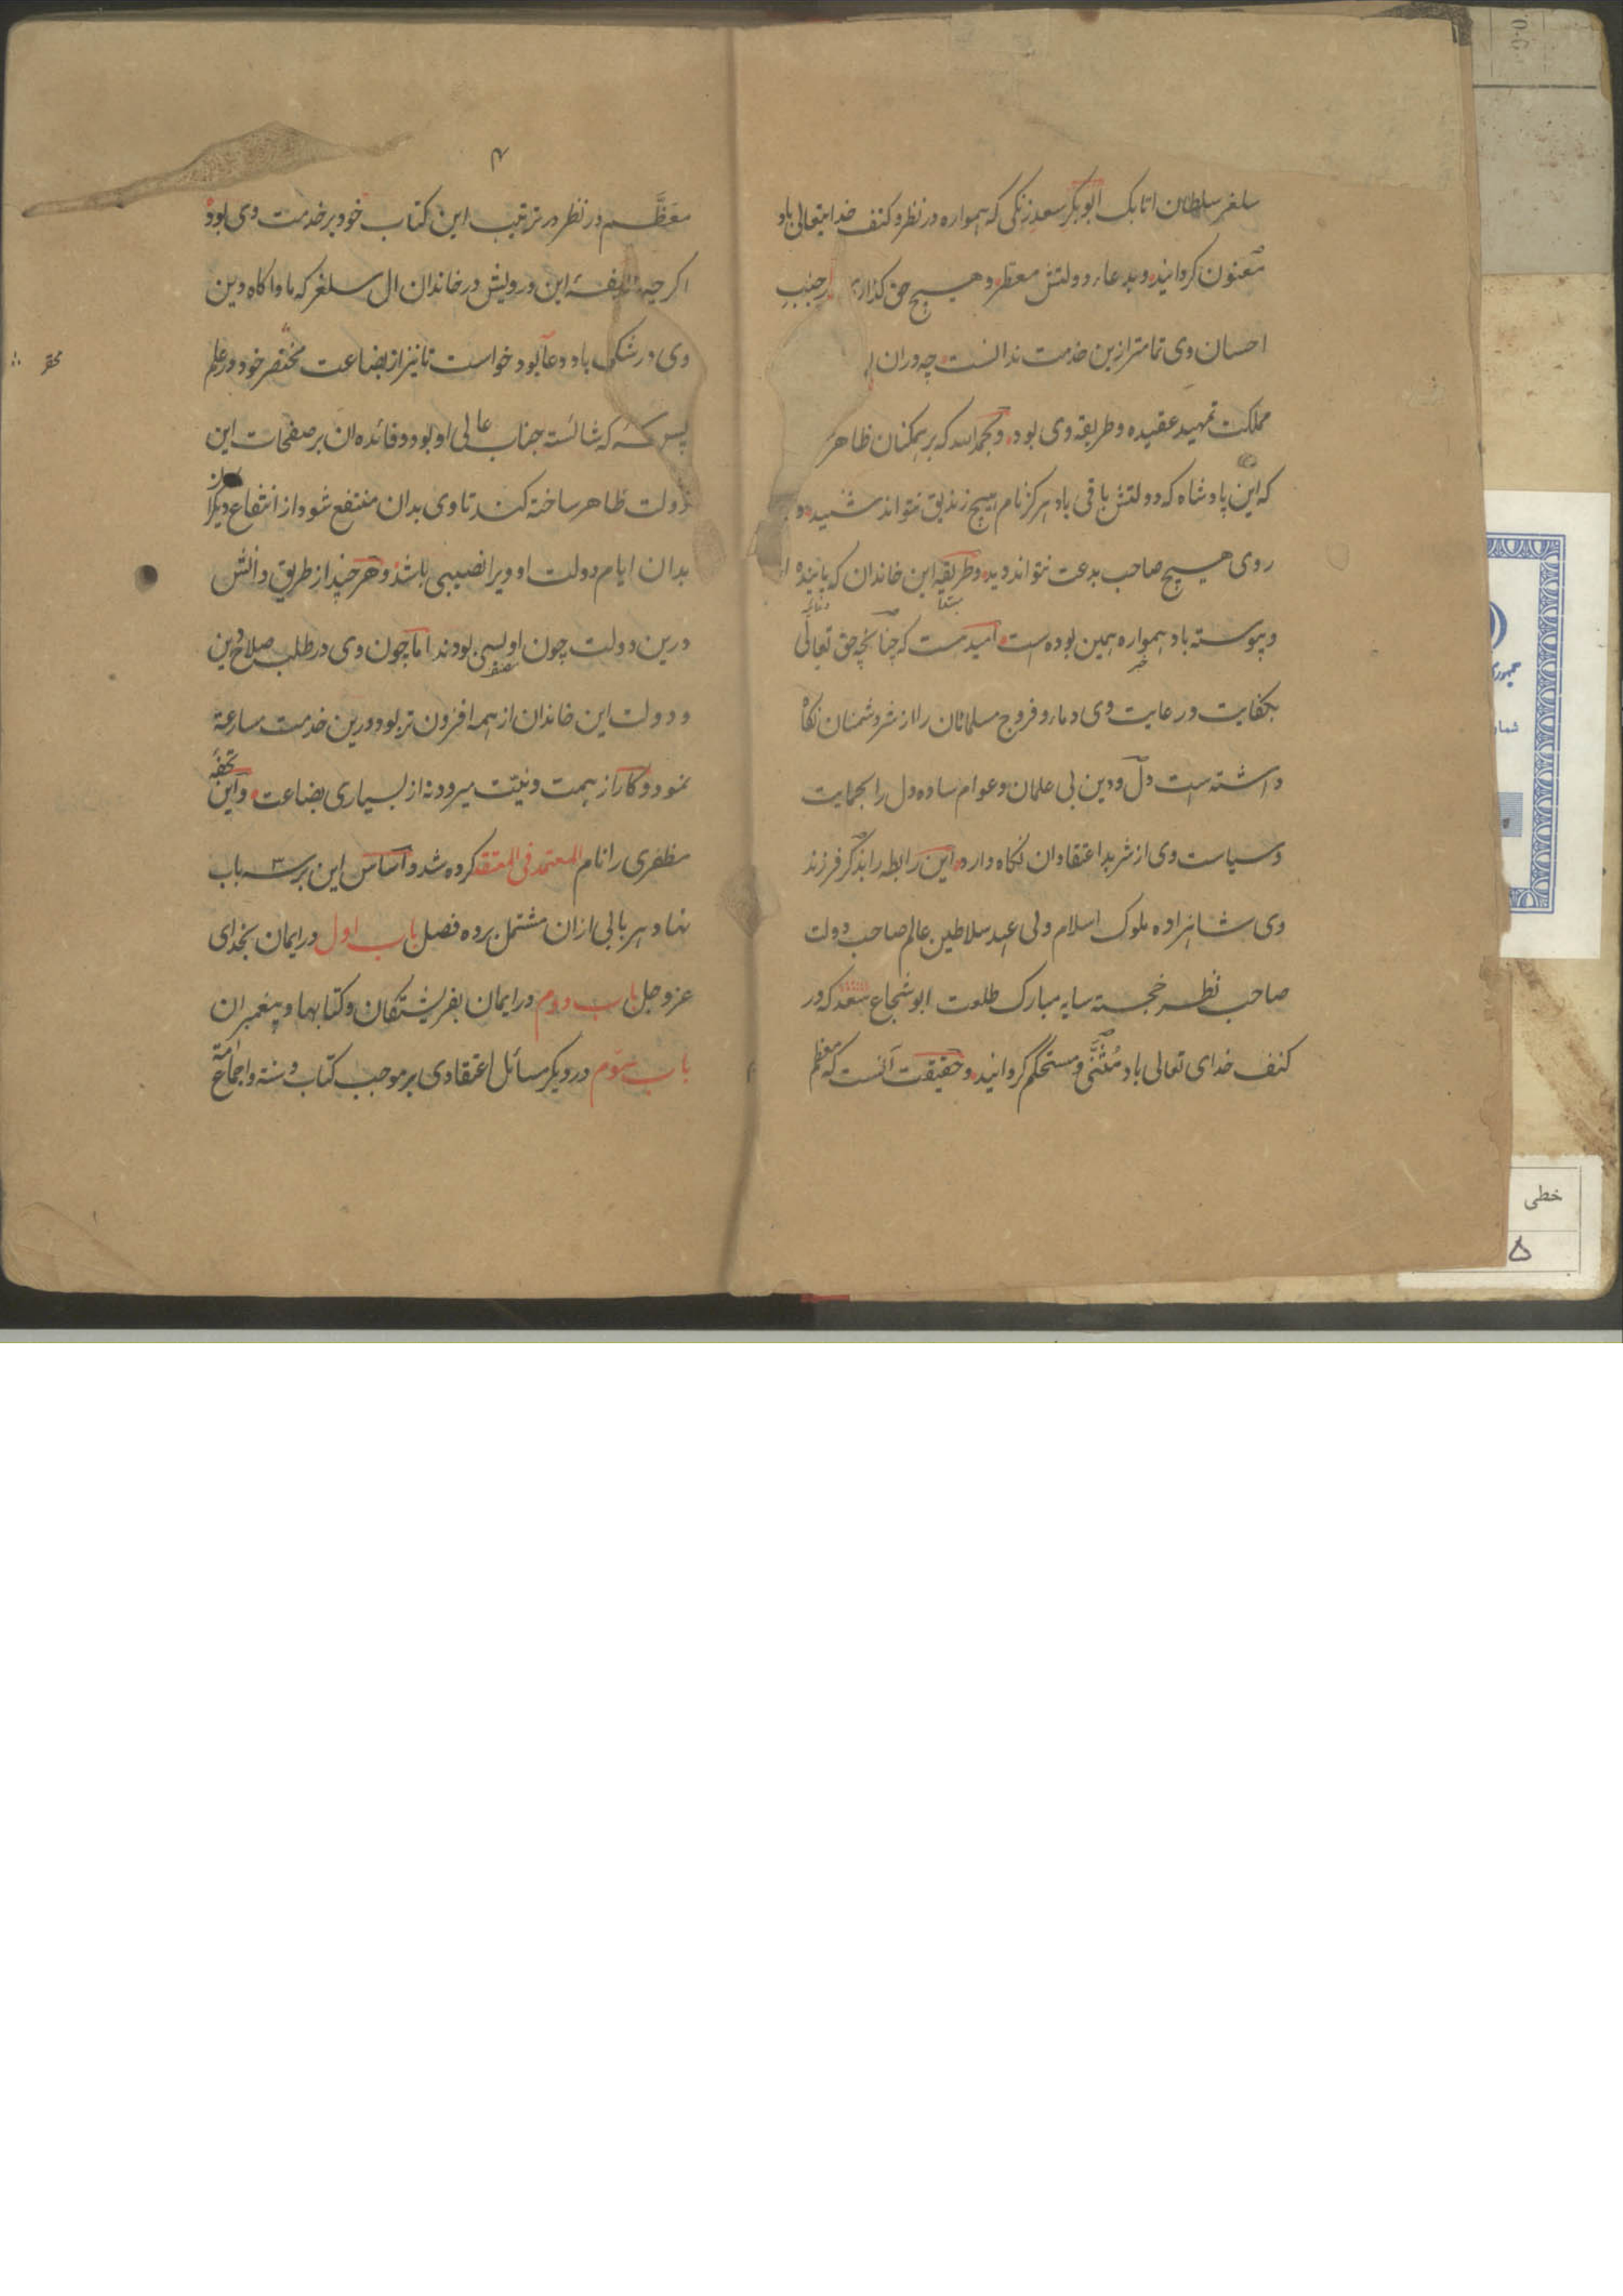 سلغر سلطان اتابک ابوبکر سعد زنکی که همواره در نظر و کنف خدایتعالی باد
معنون کردانید و بدعاء دولتش معطر و هیچ حق کذاری از جنب
احسان وی تمامتر ازین خدمت ندانست چه دران
مملکت تمهید عقیده و طریقه وی بود و بحمد الله که بر همکنان ظاهر
که این پادشاه که دولتش باقی باد هرکز نام هیچ زندیق نتواند شنید و
روی هیچ صاحب بدعت نتواند دید و طریقه این خاندان که پاینده
و پیوسته باد همواره همین بوده است امیدست که چنانچه حق تعالی
بکفایت و رعایت وی دماء و فروج مسلمانان را از شر دشمنان نکاه
داشته است دل و دین بی علمان و عوام ساده دل را بحمایت
و سیاست وی از شر بد اعتقادان نکاه دارد این رابطه را بذکر فرزند
وی شاهزاده ملوک اسلام ولی عهد سلاطین عالم صاحب دولت
صاحب نظر خجسته سایه مبارک طلعت ابو شجاع سعد که در
کنف خدای تعالی باد مثنی و مستحکم کردانید و حقیقت آنست که معظم
۴
معظم در نظر در ترتیب این کتاب خود بر خدمت وی بود
اکرچه وظیفه این درویش در خاندان ال سلغر که ماواکاه دین
وی در شکی باد دعا بود خواست تا نیز از بضاعت مختصر خود در علم
محقر
پس که شائسته جناب عالی او بود و فائده ان بر صفحات این
دولت ظاهر ساخته کند تا وی بدان منتفع شود از انتفاع دیکران
بدان ایام دولت او ویرا نصیبی باشد و هر چند از طریق دانش
درین دولت چون او بسی بودند اما چون وی در طلب صلاح دین
و دولت این خاندان از همه افزون تر بود درین خدمت مسارعة
نمود و کار از همت و نیت میرود نه از بسیاری بضاعت و این تحفه
مظفری را نام المعتمد فی المعتقد کرده شد و اساس این بر سه باب
نهاد هر بابی ازان مشتمل بر ده فصل باب اول در ایمان بخدای
عز و جل باب دوم در ایمان بفریشتکان و کتابها و پیغمبران
باب سوم در دیکر مسائل اعتقادی بر موجب کتاب و سنة و اجماع امة
خطی
۵